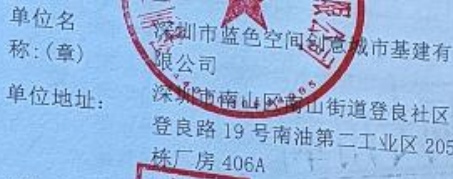 单位名
称:(章)
深圳市蓝色空间创意城市基建有
限公司
单位地址:
深圳市南山区南山街道登良社区
登良路19号南油第二工业区205
栋厂房406A